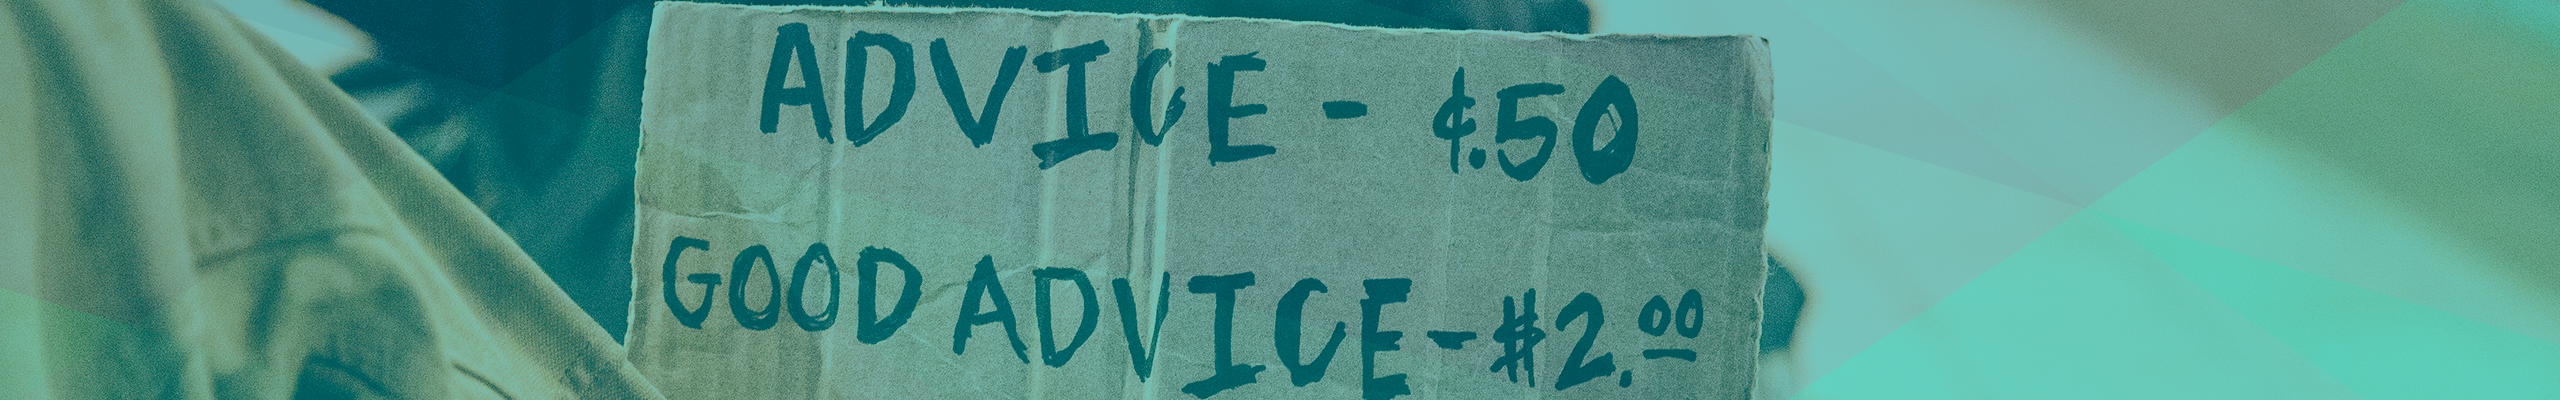 ADVICE - ¢.50
GOOD ADVICE - $2.00